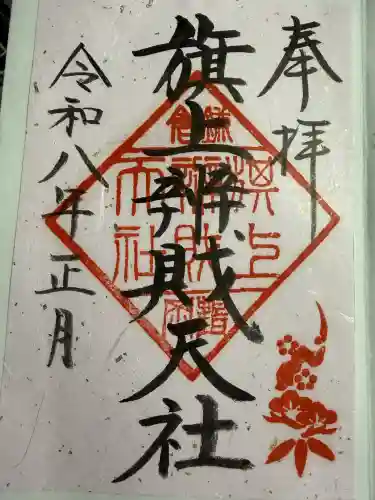 奉拝
旗上辨財天社
令和八年正月